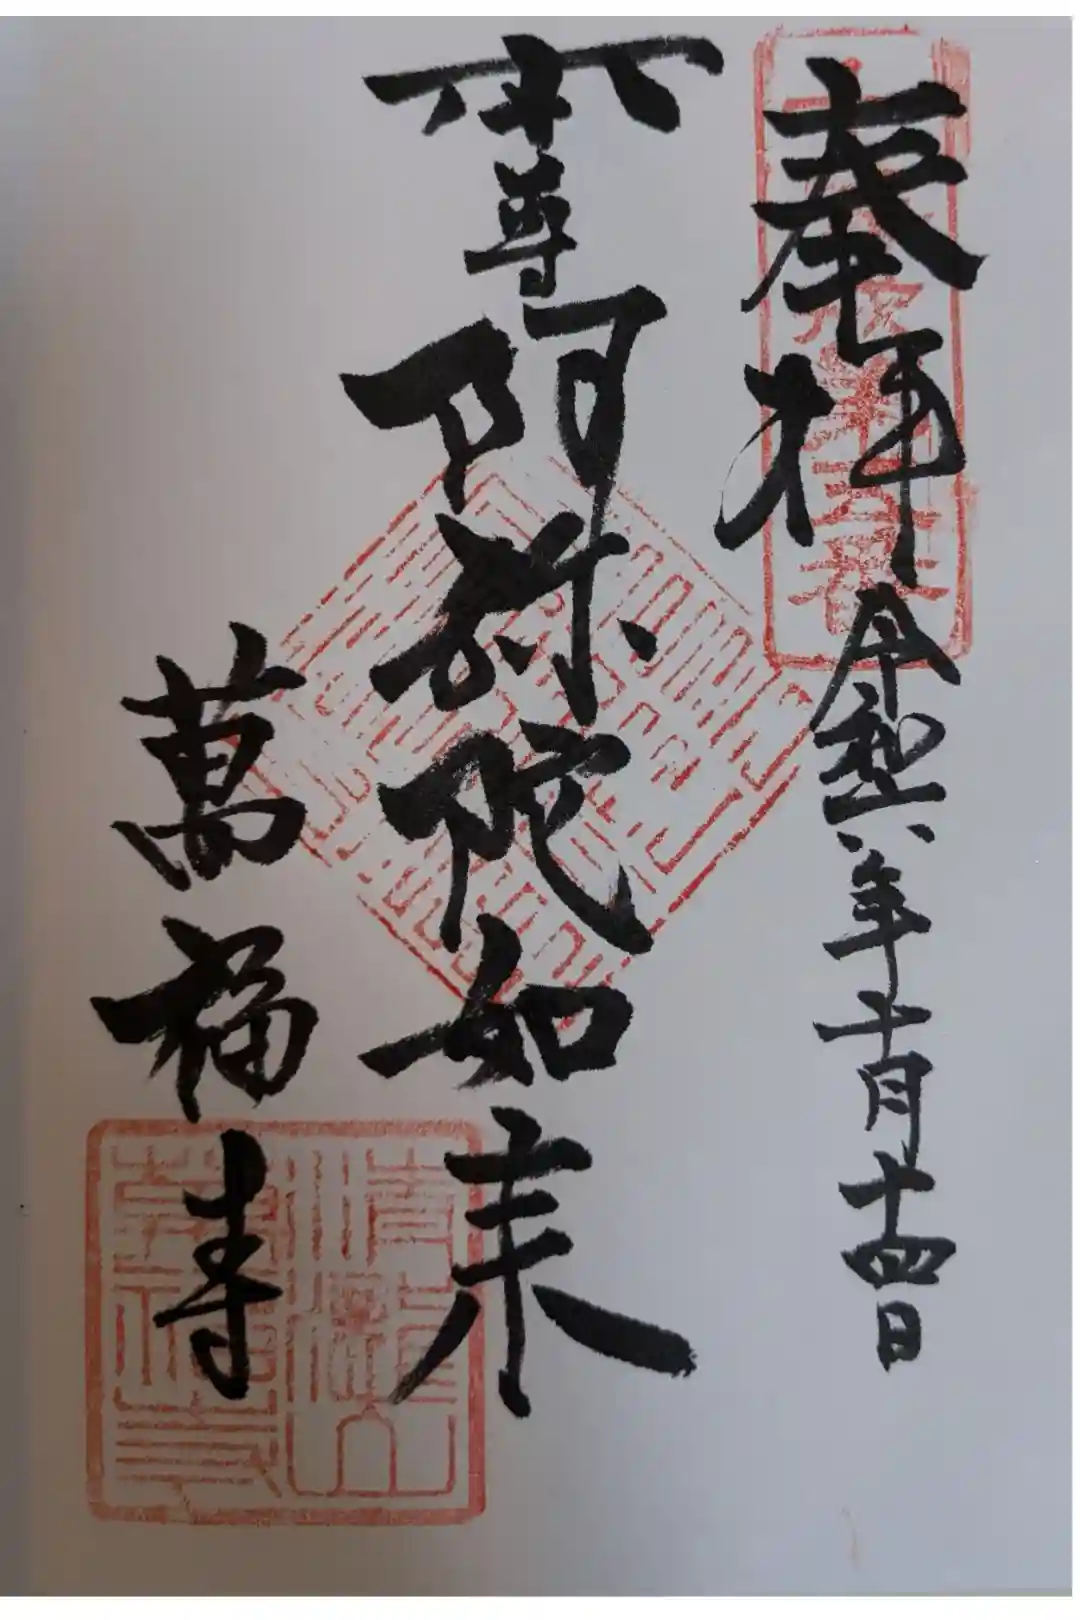 奉拝
令和六年十月十四日
本尊
阿弥陀如来
萬福寺